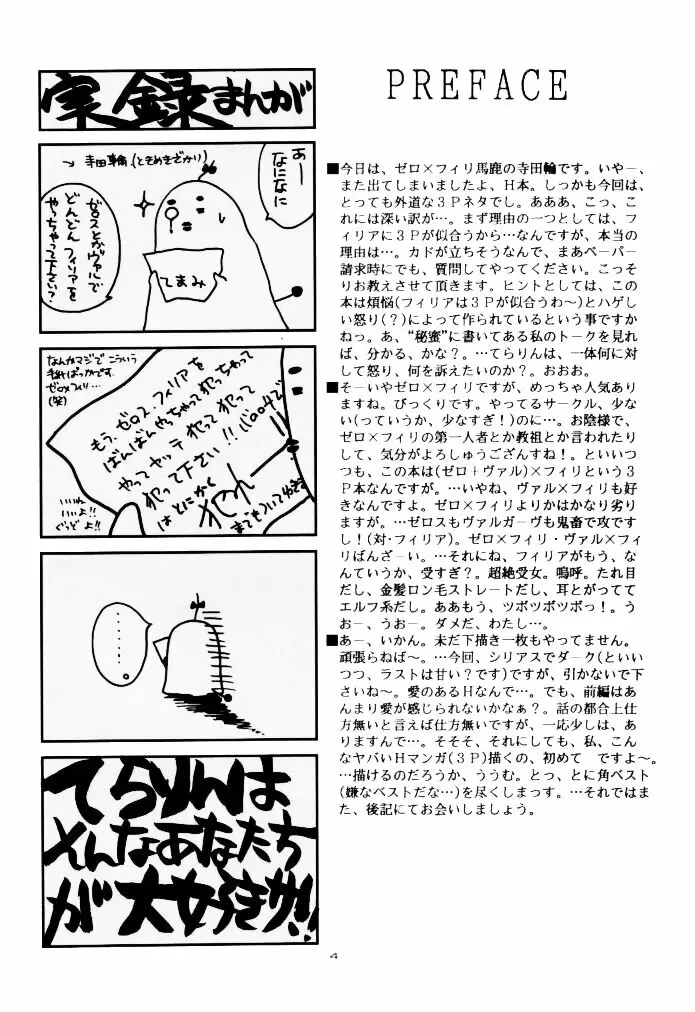 PREFACE
実録まんが
→ 寺田輪(ときめきざかり)
あー
なになに
ゼロスとかヴァルで
どんどんフィリアを
やっちゃって下さい?
てまみ
なんかマジでこういう
手紙ばっかです。
ゼロ×フィリ…
(笑)
もう、ゼロス、フィリアを
ばんばんやっちゃって犯っちゃって
やってヤッテ犯って犯って
犯って下さい!!
はとにかく
いいね
いいよ!!
ぐっどよ!!
・・・・・。
てらりんは
そんなあなたち
が大好きサ!!
■今日は、ゼロ×フィリ馬鹿の寺田輪です。いやー、
また出てしまいましたよ、H本。しっかも今回は、
とっても外道な3Pネタでし。あああ、こっ、こ
れには深い訳が…。まず理由の一つとしては、フ
ィリアに3Pが似合うから…なんですが、本当の
理由は…。カドが立ちそうなんで、まあペーパー
請求時にでも、質問してやってください。こっそ
りお教えさせて頂きます。ヒントとしては、この
本は煩悩(フィリアは3Pが似合うわ〜)とハゲし
い怒り(?)によって作られているという事ですか
ねっ。あ、“秘蜜”に書いてある私のトークを見れ
ば、分かる、かな?。…てらりんは、一体何に対
して怒り、何を訴えたいのか?。おおお。
■そーいやゼロ×フィリですが、めっちゃ人気あり
ますね。びっくりです。やってるサークル、少な
い(っていうか、少なすぎ!)のに…。お陰様で、
ゼロ×フィリの第一人者とか教祖とか言われたり
して、気分がよろしゅうございんすね!。といいつ
つも、この本は(ゼロ+ヴァル)×フィリという3
P本なんですが。…いやね、ヴァル×フィリも好
きなんですよ。ゼロ×フィリよりかはかなり劣り
ますが。…ゼロスもヴァルガーヴも鬼畜で攻です
し!(対・フィリア)。ゼロ×フィリ・ヴァル×フィ
リばんざーい。…それにね、フィリアがもう、な
んていうか、受すぎ?。超絶受女。嗚呼。たれ目
だし、金髪ロン毛ストレートだし、耳とがってて
エルフ系だし。ああもう、ツボツボツボっ!。う
おー、うおー。ダメだ、わたし…。
■あー、いかん。未だ下描き一枚もやってません。
頑張らねば〜。…今回、シリアスでダーク(といい
つつ、ラストは甘い?です)ですが、引かないで下
さいね〜。愛のあるHなんで…。でも、前編はあ
んまり愛が感じられないかなぁ?。話の都合上仕
方無いと言えば仕方無いですが、一応少しは、あ
りますんで…。そそそ、それにしても、私、こん
なヤバいHマンガ(3P)描くの、初めて　ですよ〜。
…描けるのだろうか、ううむ。とっ、とに角ベスト
(嫌なベストだな…)を尽くしまっす。…それではま
た、後記にてお会いしましょう。
4